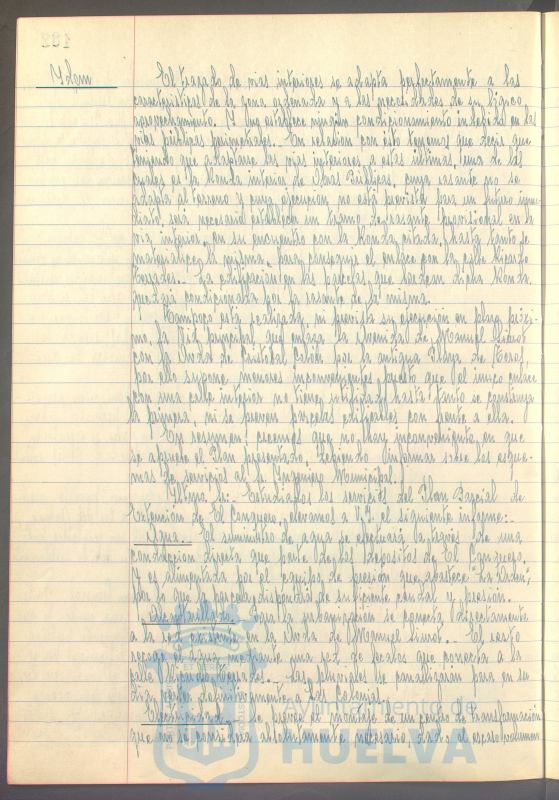 182
Idem
El trazado de vias interiores se adapta perfectamente a las
caracteristicas de la zona ordenada y a las necesidades de su lógico
aprovechamiento. Y establece ningún condicionamiento en las
vias públicas perimetrales.- En relacion con ésto tenemos que decir que
teniendo que adaptarse las vias interiores a estas últimas, una de las
cuales es la Ronda interior de Obras Públicas, cuya rasante no se
adapta al terreno y cuya ejecucion no está prevista para un futuro inme-
diato, será necesario establecer un tramo de rasante provisional en la
via interior, en su encuentro con la Ronda citada, hasta tanto se
materialice la misma, para conseguir el enlace con la calle Ricardo
Terrades.- La edificacion en las parcelas que bordean dicha Ronda,
quedará condicionada por la rasante de la misma.
Tampoco está realizada, ni prevista su ejecución en plazo próxi-
mo, la Via principal que enlaza la Avenida de Manuel Siurot
con la Avda de Cristobal Colón por la antigua Plaza de Toros,
por ello supone menores inconvenientes, puesto que el único enlace
con una calle interior no tiene justificación hasta tanto se construya
la primera, ni se preven parcelas edificables con frente a ella.
En resumen, creemos que no hay inconveniente en que
se apruebe el Plan presentado, debiendo informar sobre los esque-
mas de servicios al Sr. Ingeniero Municipal.
Ultimo Sr.: Estudiados los servicios del Plan Parcial de
Extención de El Conquero, elevamos a V.I. el siguiente informe:-
Agua.- El suministro de agua se efectuará a través de una
conduccion directa que parte de los depositos de El Conquero,
y es alimentada por el equipo de presión que abastece "La Orden",
por lo que la parcela dispondrá de suficiente caudal y presión.
Alcantarillado.- Para la urbanización se conecta directamente
a la red existente en la Avda de Manuel Siurot.- El resto
recoge el agua mediante una red de fecales que conecta a la
calle Ricardo Terrades.- Las pluviales se canalizarán para en su
dia verter a las Colonias.
Electricidad.- Se prevee el montaje de un centro de transformación
que no se considera absolutamente necesario, dado el escaso volumen
Ayuntamiento de
HUELVA